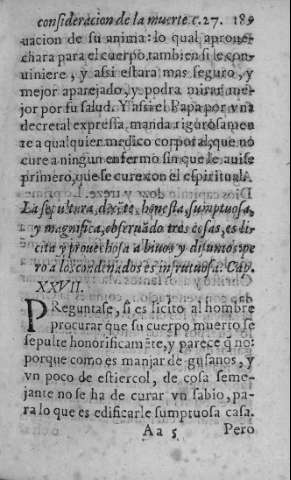 consideracion de la muerte. c. 27. 189
uacion de su anima: lo qual aproue-
chara para el cuerpo, tambien si le con-
uiniere, y assi estara mas seguro, y
mejor aparejado, y podra mirar me-
jor por su salud. Y assi el Papa por vna
decretal expressa, manda rigurosamen
te a qualquier medico corporal, que no
cure a ningun enfermo sin que le auise
primero, que se cure con el espiritual.
La sepultura, decẽte, honesta, sumptuosa,
y magnifica, obseruãdo tres cosas, es li-
cita y prouechosa a biuos y difuntos: pe
ro a los condenados es infrutuosa. Cap.
XXVII.
PReguntase, si es licito al hombre
procurar que su cuerpo muerto se
sepulte honorificamẽte, y parece q̃ no:
porque como es manjar de gusanos, y
vn poco de estiercol, de cosa seme-
jante no se ha de curar vn sabio, pa-
ra lo que es edificarle sumptuosa casa.
Aa 5 Pero